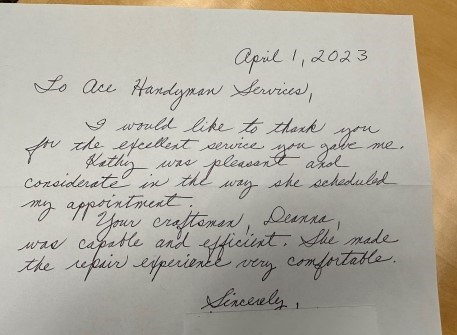 April 1, 2023
To Ace Handyman Services,
I would like to thank you
for the excellent service you gave me.
Kathy was pleasant and
considerate in the way she scheduled
my appointment.
Your craftsman, Deanna,
was capable and efficient. She made
the repair experience very comfortable.
Sincerely,